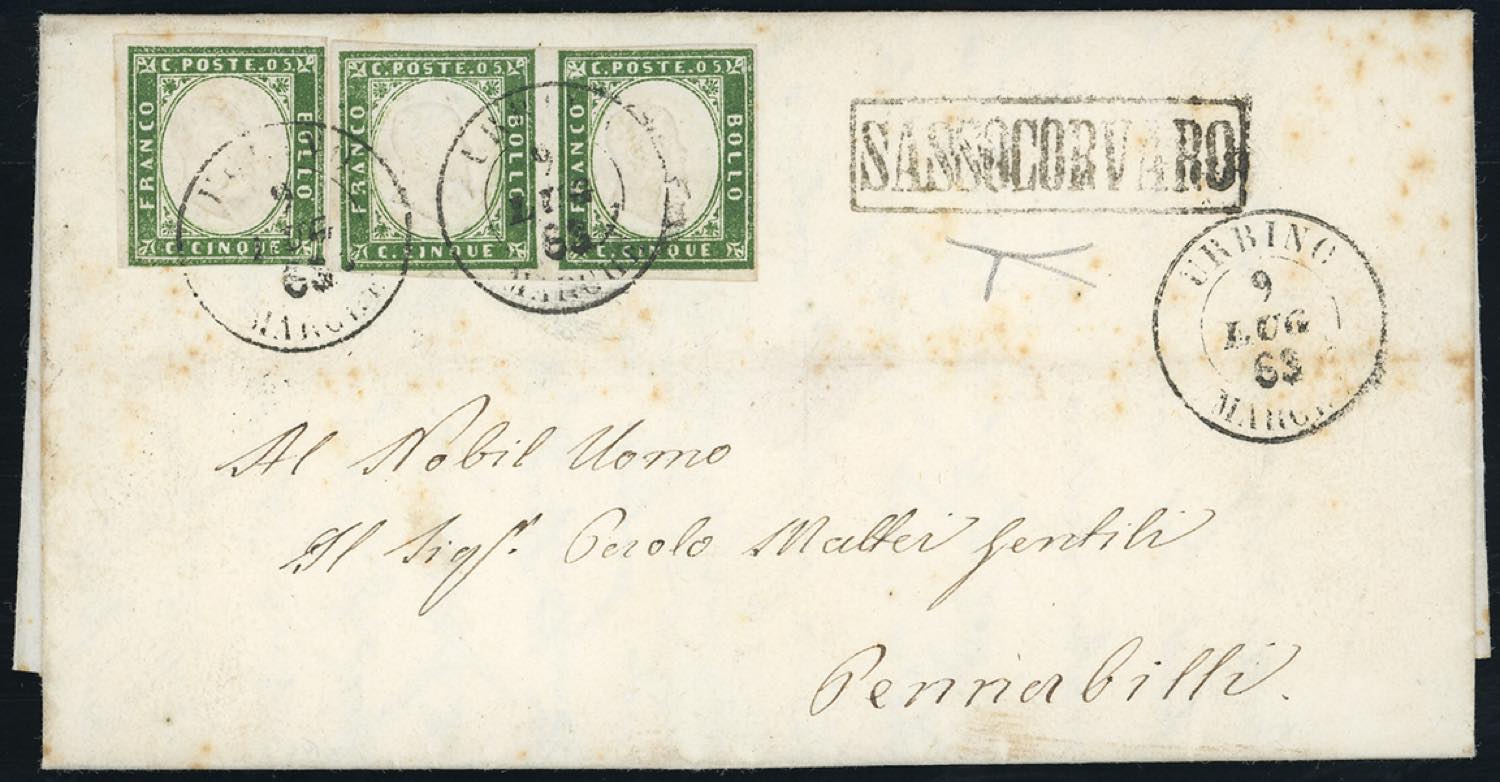 C. POSTE. 05
FRANCO
BOLLO
C. CINQUE
C. POSTE. 05
FRANCO
BOLLO
C. CINQUE
C. POSTE. 05
FRANCO
BOLLO
C. CINQUE
9
LUG
63
MARCHE
9
LUG
63
MARCHE
SASSOCORVARO
URBINO
9
LUG
63
MARCHE
Al Nobil Uomo
Il Sigr. Paolo Mattei Gentili
Pennabilli.